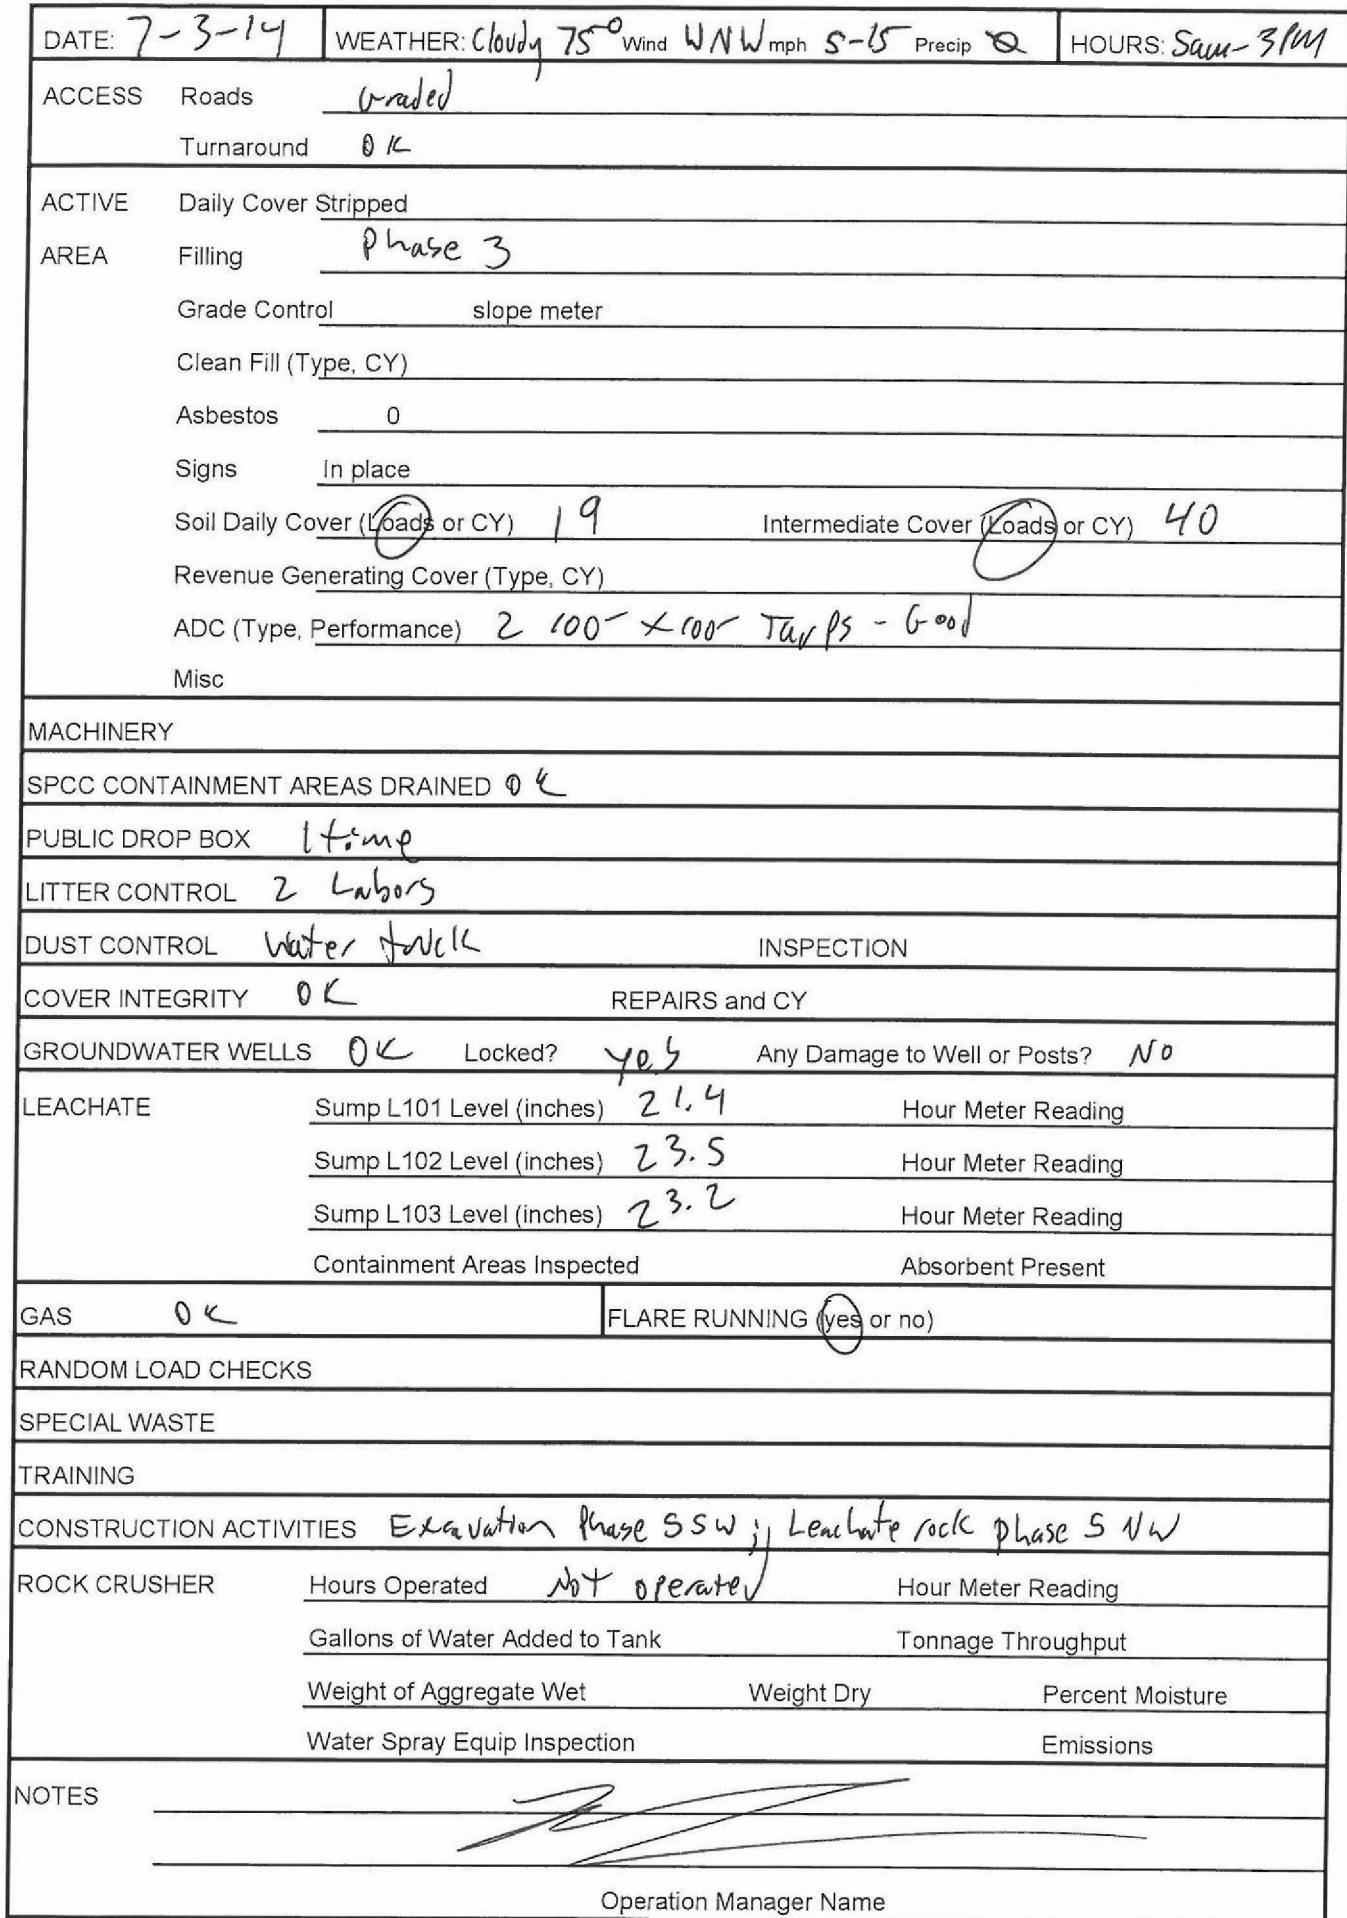 DATE: 7-3-14 WEATHER: Cloudy 75° Wind WNW mph 5-15 Precip Ø HOURS: 5am-3PM
ACCESS Roads Graded
Turnaround OK
ACTIVE Daily Cover Stripped
AREA Filling Phase 3
Grade Control slope meter
Clean Fill (Type, CY)
Asbestos 0
Signs In place
Soil Daily Cover (Loads or CY) 19 Intermediate Cover (Loads or CY) 40
Revenue Generating Cover (Type, CY)
ADC (Type, Performance) 2 100' x 100' Tarps - Good
Misc
MACHINERY
SPCC CONTAINMENT AREAS DRAINED OK
PUBLIC DROP BOX 1 time
LITTER CONTROL 2 Labors
DUST CONTROL Water truck INSPECTION
COVER INTEGRITY OK REPAIRS and CY
GROUNDWATER WELLS OK Locked? yes Any Damage to Well or Posts? No
LEACHATE Sump L101 Level (inches) 21.4 Hour Meter Reading
Sump L102 Level (inches) 23.5 Hour Meter Reading
Sump L103 Level (inches) 23.2 Hour Meter Reading
Containment Areas Inspected Absorbent Present
GAS OK FLARE RUNNING (yes or no)
RANDOM LOAD CHECKS
SPECIAL WASTE
TRAINING
CONSTRUCTION ACTIVITIES Excavation Phase 5 SW; Leachate rock phase 5 NW
ROCK CRUSHER Hours Operated Not operated Hour Meter Reading
Gallons of Water Added to Tank Tonnage Throughput
Weight of Aggregate Wet Weight Dry Percent Moisture
Water Spray Equip Inspection Emissions
NOTES
Operation Manager Name